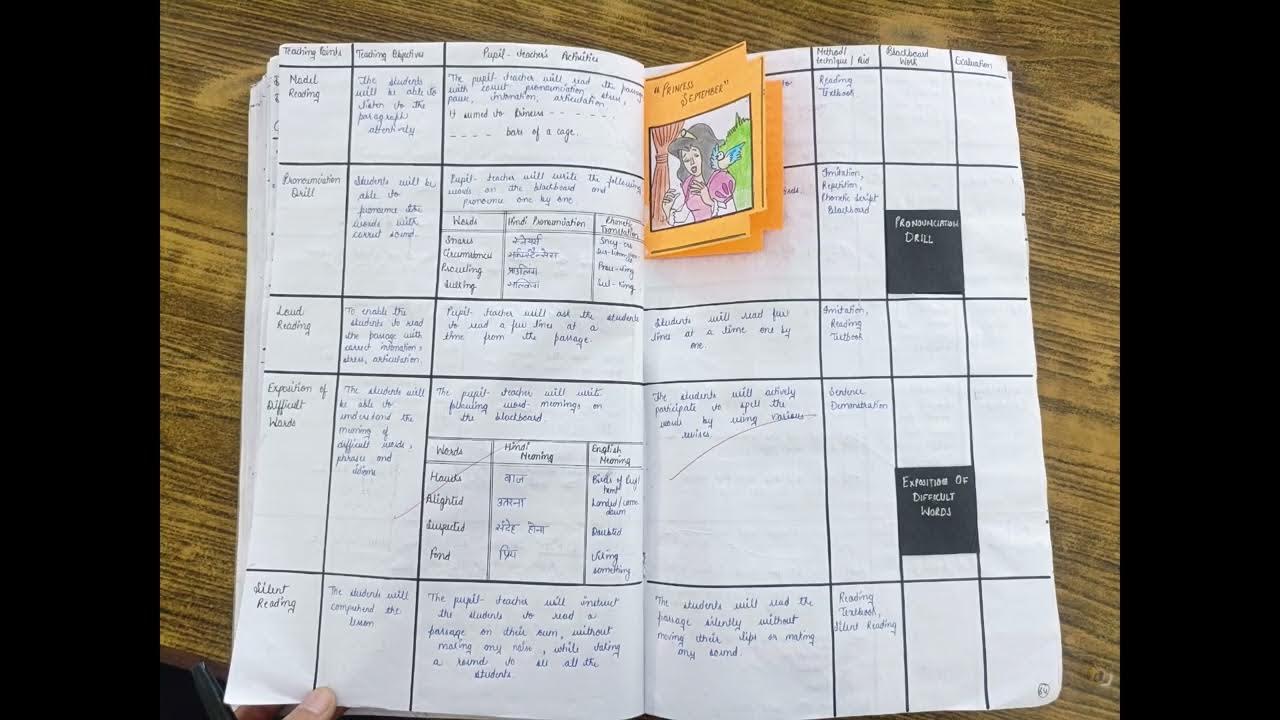 Teaching Points
Teaching Objectives
Pupil-teacher's Activities
Method/
technique/Aid
Blackboard
Work
Evaluation
Model
Reading
The students
will be able to
listen to the
paragraph
attentively
The pupil-teacher will read the passage
with correct pronunciation, stress,
pause, intonation, articulation.
It seemed to Princess - - - - - -
- - - - bars of a cage.
"PRINCESS
SEPTEMBER"
to
Reading
Textbook
Pronunciation
Drill
Students will be
able to
pronounce the
words with
correct sound.
Pupil-teacher will write the following
words on the blackboard and
pronounce one by one.
Words
Hindi Pronunciation
Phonetic
Translation
Snares
Prowling
Prow-ling
Sulking
Sul-King
Imitation,
Repetition,
Phonetic Script
Blackboard
PRONOUNCIATION
DRILL
Loud
Reading
To enable the
students to read
the passage with
correct intonation,
stress, articulation.
Pupil-teacher will ask the students
to read a few lines at a
time from the passage.
Students will read few
lines at a time one by
one.
Imitation,
Reading
Textbook
Exposition of
Difficult
Words
The students will
be able to
understand the
meaning of
difficult words,
phrases and
idioms
The pupil-teacher will write
following word-meanings on
the blackboard.
Words
Hindi
Meaning
English
Meaning
Hawks
बाज
Birds of Prey/
Alighted
उतरना
Landed/come
down
Suspected
संदेह होना
Doubted
Fond
प्रिय
Liking
something
The students will actively
participate to spell the
words by using various
Sentence
Demonstration
EXPOSITION OF
DIFFICULT
WORDS
Silent
Reading
The students will
comprehend the
lesson
The pupil-teacher will instruct
the students to read a
passage on their own, without
making any noise, while taking
a round to see all the
students.
The students will read the
passage silently without
moving their lips or making
any sound.
Reading
Textbook,
Silent Reading
64